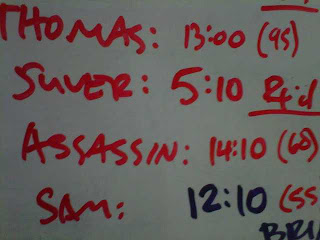 THOMAS: 13:00 (95)
SUVER: 5:10
ASSASSIN: 14:10 (68)
SAM: 12:10 (55